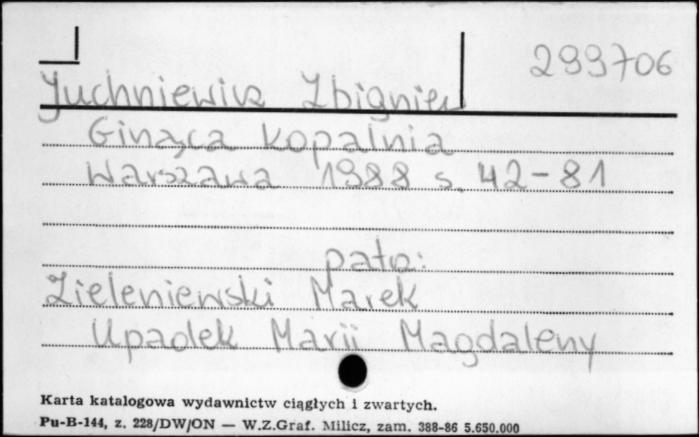 299706
Juchniewicz Zbigniew
Ginąca kopalnia
Warszawa 1988 s. 42-81
patrz:
Zieleniewski Marek
Upadek Marii Magdaleny
Karta katalogowa wydawnictw ciągłych i zwartych.
Pu-B-144, z. 228/DW/ON — W.Z.Graf. Milicz, zam. 388-86 5.650.000